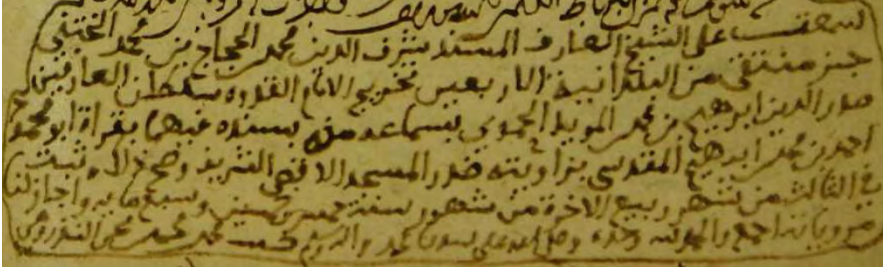 سمعت على الشيخ العارف المسند شرف الدين محمد الحجاج بن محمد الحنفي
جزء منتقى من البلدانية الاربعين تخريج الامام القدوة سلطان العارفين
صدر الدين ابرهيم بن محمد المويد الحموي بسماعه منه بسنده فيها بقراة الامام محمد
احمد بن محمد ابرهيم المقدسي بزاويته صدر المسجد الاقصى الشريف وصح ذلك وثبت
في الثالث من شهر ربيع الاخرة من شهور سنة خمس وخمسين وسبع مايه واجاز لنا
مروياته اجمع والحمد لله وحده وصلى الله على سيدنا محمد واله وسلم كتبه محمد محمد